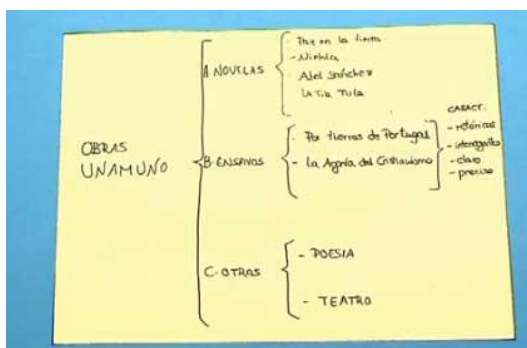 OBRAS
UNAMUNO
A NOVELAS
- Paz en la tierra
- Niebla
- Abel Sánchez
La Tía Tula
B. ENSAYOS
- Por tierras de Portugal
- La Agonía del Cristianismo
CARACT.
- retóricos
- interrogantes
- claro
- preciso
C. OTRAS
- POESIA
- TEATRO